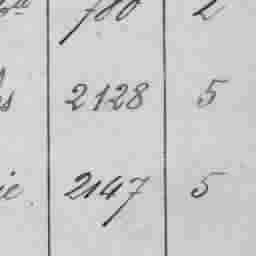 700 2
s 2128 5
ie. 2147 5